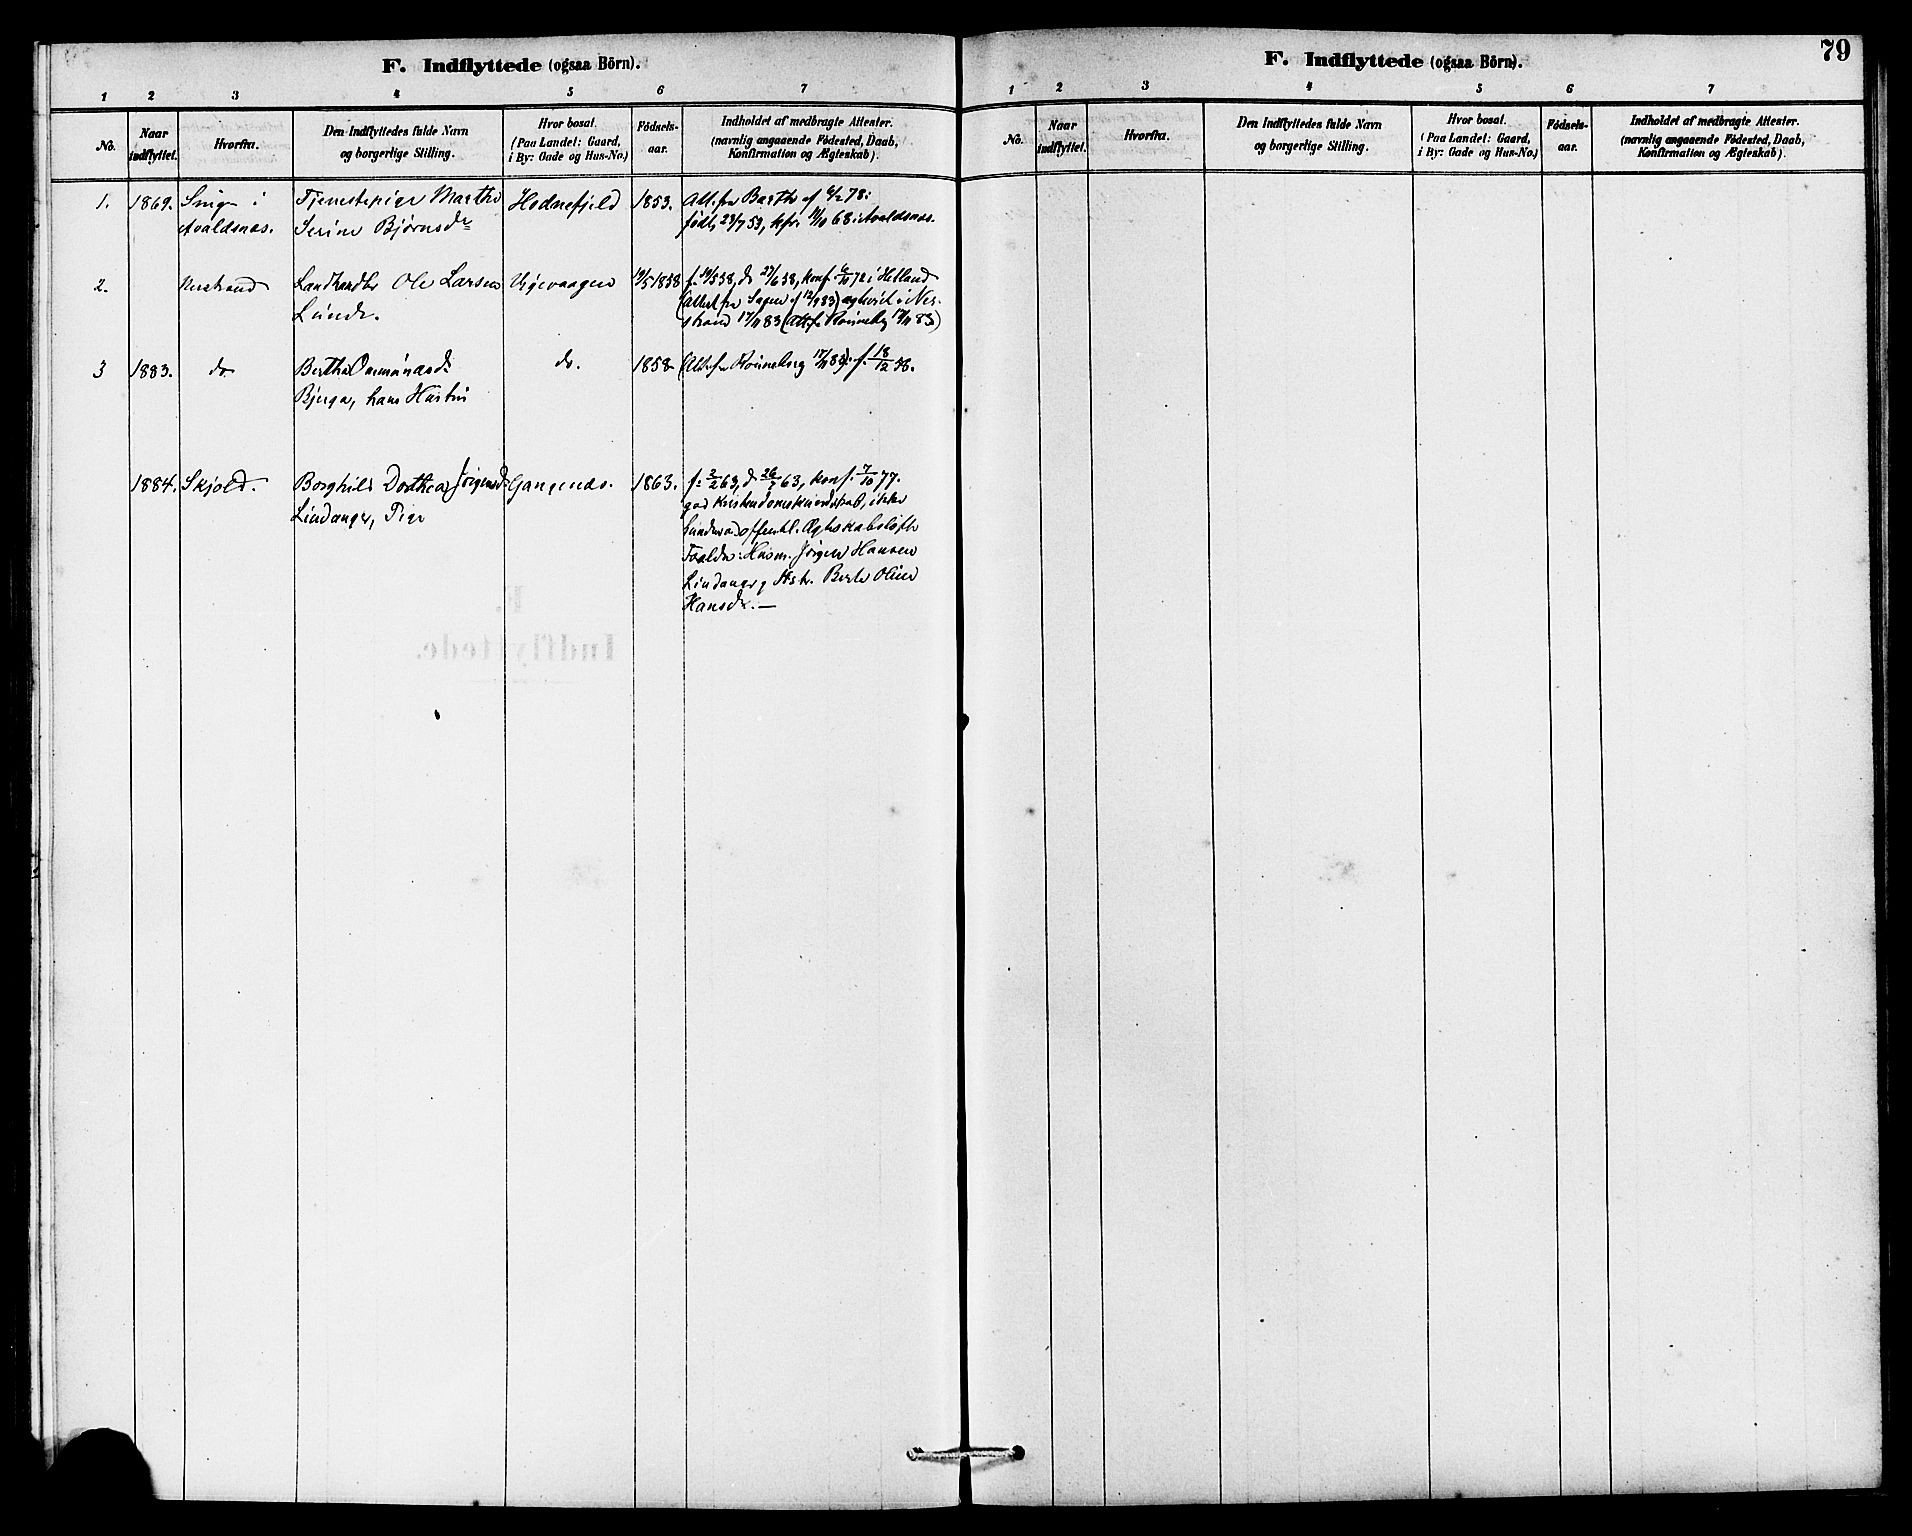 F. Indflyttede (ogsaa Börn).
1 2 3 4 5 6 7
No. Naar indflyttet. Hvorfra. Den Indflyttedes fulde Navn og borgerlige Stilling. Hvor bosat. (Paa Landet: Gaard, i By: Gade og Hus-No.) Födsels-aar. Indholdet af medbragte Attester. (navnlig angaaende Födested, Daab, Konfirmation og Ægteskab).
1. 1869. i Tjenestepige Marthe Hodnefjeld 1853. Att. fra Barth af 6/2 78:
Avaldsnæs. Serine Bjørnsdr født 23/7 53, kfr. 11/10 68 i Avaldsnæs.
2. Nerstrand Landhandler Ole Larsen Vigevaagen 19/5 1858 f. 19/5 58, d 27/6 58, konf. 6/10 72 i Hetland
Lunde. (Attest fra af 12/9 83) og i Ner-
strand 17/11 83 (Att. f. Rönneberg 17/11 83)
3 1883. do Berthe Osmundsd. do. 1858 (Att. fra Rönneberg 17/11 83). f. 18/12 58.
Bjerga, hans Hustru
1884. Skjold. Borghild Dorthea Jörgensd. Gangenæs. 1863. f. 2/2 63, d 26/7 63, konf. 7/10 77.
Lindanger, Pige god Kristendomskundskab, ikke
offentl. Ægteskabsløfte
Forældre: Husm. Jörgen Hansen
Lindanger og Hstr. Berte Oline
Hansdr. —
F. Indflyttede (ogsaa Börn).
79
1 2 3 4 5 6 7
No. Naar indflyttet. Hvorfra. Den Indflyttedes fulde Navn og borgerlige Stilling. Hvor bosat. (Paa Landet: Gaard, i By: Gade og Hus-No.) Födsels-aar. Indholdet af medbragte Attester. (navnlig angaaende Födested, Daab, Konfirmation og Ægteskab).